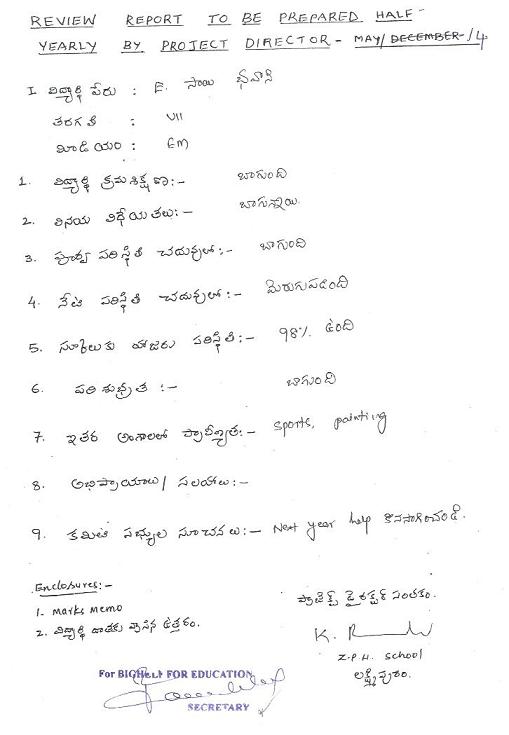 REVIEW REPORT TO BE PREPARED HALF-
YEARLY BY PROJECT DIRECTOR - MAY/DECEMBER-14
I విద్యార్థి పేరు : E. సాయి భవాని
తరగతి : VII
మీడియం : EM
1. విద్యార్థి క్రమశిక్షణ:- బాగుంది
2. వినయ విధేయతలు:- బాగున్నాయి.
3. పూర్వ పరిస్థితి చదువులో:- బాగుంది
4. నేటి పరిస్థితి చదువులో:- మెరుగుపడింది
5. స్కూలుకు హాజరు పరిస్థితి:- 98% ఉంది
6. పరిశుభ్రత :- బాగుంది
7. ఇతర అంశాలలో ప్రావీణ్యత:- sports, painting
8. అభిప్రాయాలు/ సలహాలు:-
9. కమిటి సభ్యుల సూచనలు:- Next year help కొనసాగించండి.
Enclosures:-
1. marks memo
2. విద్యార్థి దాతకు వ్రాసిన ఉత్తరం.
ప్రాజెక్ట్ డైరక్టర్ సంతకం.
Z.P.H. school
లక్ష్మీపురం.
For BIGHELP FOR EDUCATION
SECRETARY